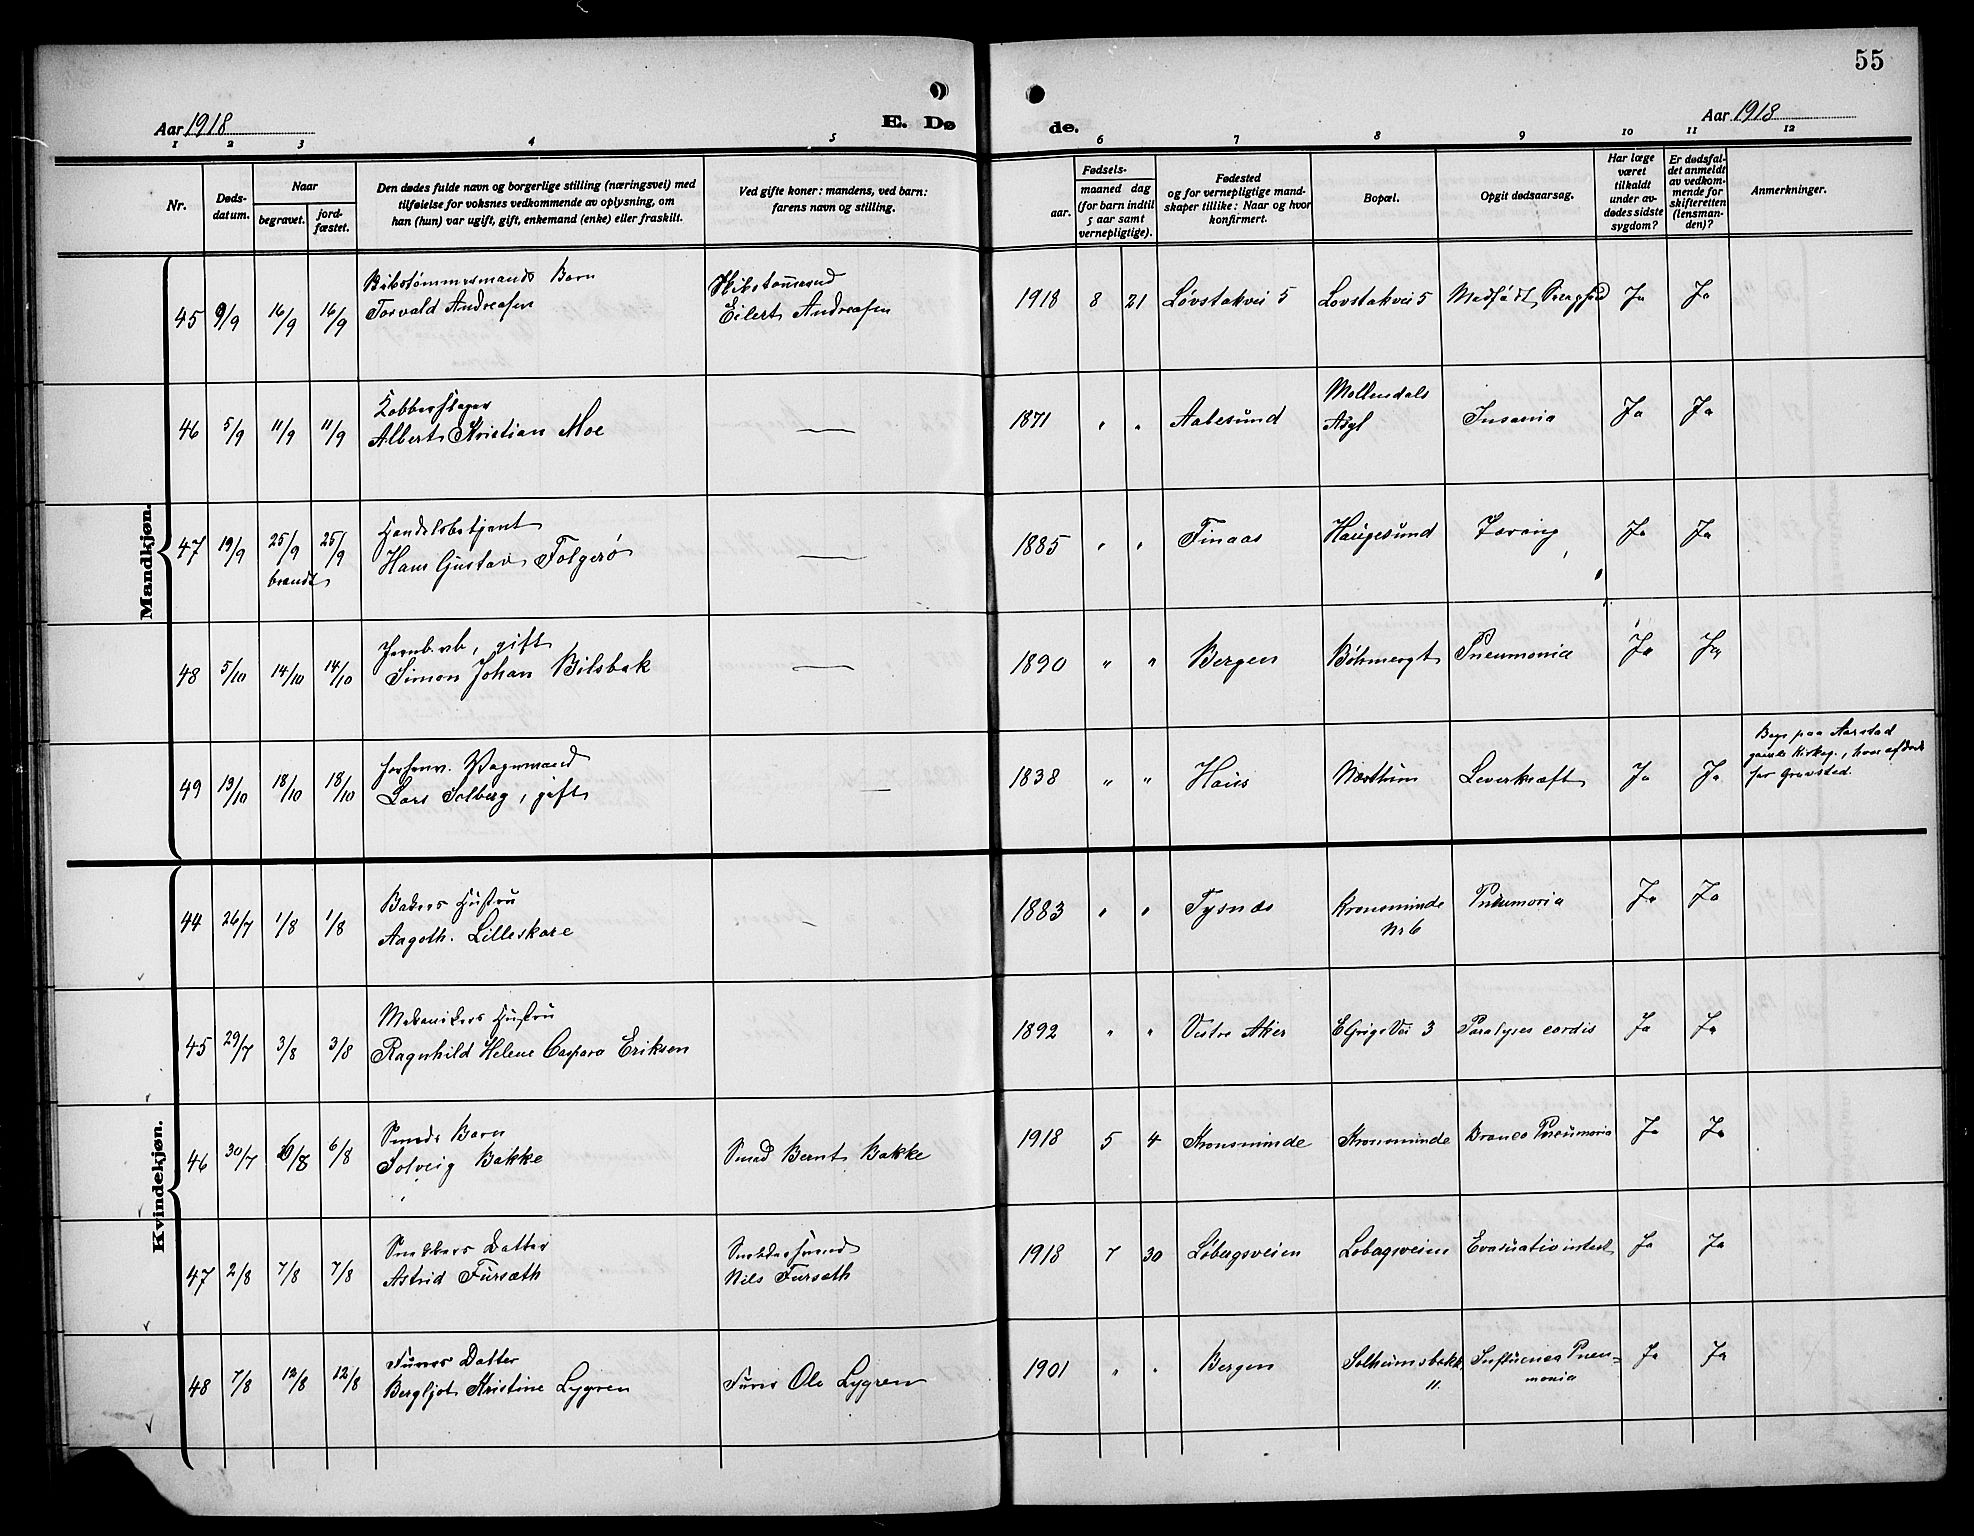 55
Aar 1918
E. Dø
de.
Aar 1918
1 2 3 4 5 6 7 8 9 10 11 12
Nr.
Døds-
datum.
Naar
begravet.
jord-
fæstet.
Den dødes fulde navn og borgerlige stilling (næringsvei) med
tilføielse for voksnes vedkommende av oplysning, om
han (hun) var ugift, gift, enkemand (enke) eller fraskilt.
Ved gifte koner: mandens, ved barn:
farens navn og stilling.
Fødsels-
aar.
maaned dag
(for barn indtil
5 aar samt
vernepligtige).
Fødested
og for vernepligtige mand-
skaper tillike: Naar og hvor
konfirmert.
Bopæl.
Opgit dødsaarsag.
Har læge
været
tilkaldt
under av-
dødes sidste
sygdom?
Er dødsfal-
det anmeldt
av vedkom-
mende for
skifteretten
(lensman-
den)?
Anmerkninger.
Mandkjøn.
Barn
45 9/9 16/9 16/9 Torvald Andreasen Eilert Andreasen 1918 8 21 Løvstakvei 5 Lovstakvei 5 Medfødt Ja Ja
Kobberslager
46 5/9 11/9 11/9 Albert Kristian Moe — 1871 " " Aalesund Møllendals Asyl Insania Ja Ja
Handelsbetjent
47 19/9 25/9 25/9 Hans Gustav Folgerø — 1885 " " Finaas Haugesund Ja Ja
brændt
gift
48 5/10 14/10 14/10 Simon Johan Bilsbak — 1890 " " Bergen Bøhmergt Pneumonia Ja Ja
forhenv. Vognmand
49 13/10 18/10 18/10 Lars Solberg, gift — 1838 " " Haus Næsttun Leverkræft Ja Ja
Begr. paa Aarstad
gamle Kirkeg., hvor afdøde
har Gravsted.
Kvindekjøn.
Bakers Hustru
44 26/7 1/8 1/8 Aagoth. Lilleskare — 1883 " " Tysnæs Kronsminde Nr 6 Pneumonia Ja Ja
Mekanikers Hustru
45 29/7 3/8 3/8 Ragnhild Helene Caspara Eriksen 1892 " " Vestre Aker E Griegs Vei 3 Paralyses cordis Ja Ja
Smeds Barn
46 30/7 6/8 6/8 Solveig Bakke Smed Bernt Bakke 1918 5 4 Kronsminde Kronsminde Pneumonia Ja Ja
Datter
47 2/8 7/8 7/8 Astrid Furseth Nils Furseth 1918 7 30 Løbergsveien Løbergsveien Ja Ja
Furers Datter
48 7/8 12/8 12/8 Bergljot Kristine Lygren Furer Ole Lygren 1901 " " Bergen Solheimsbakk 11. Influensa Pneu-
monia Ja Ja